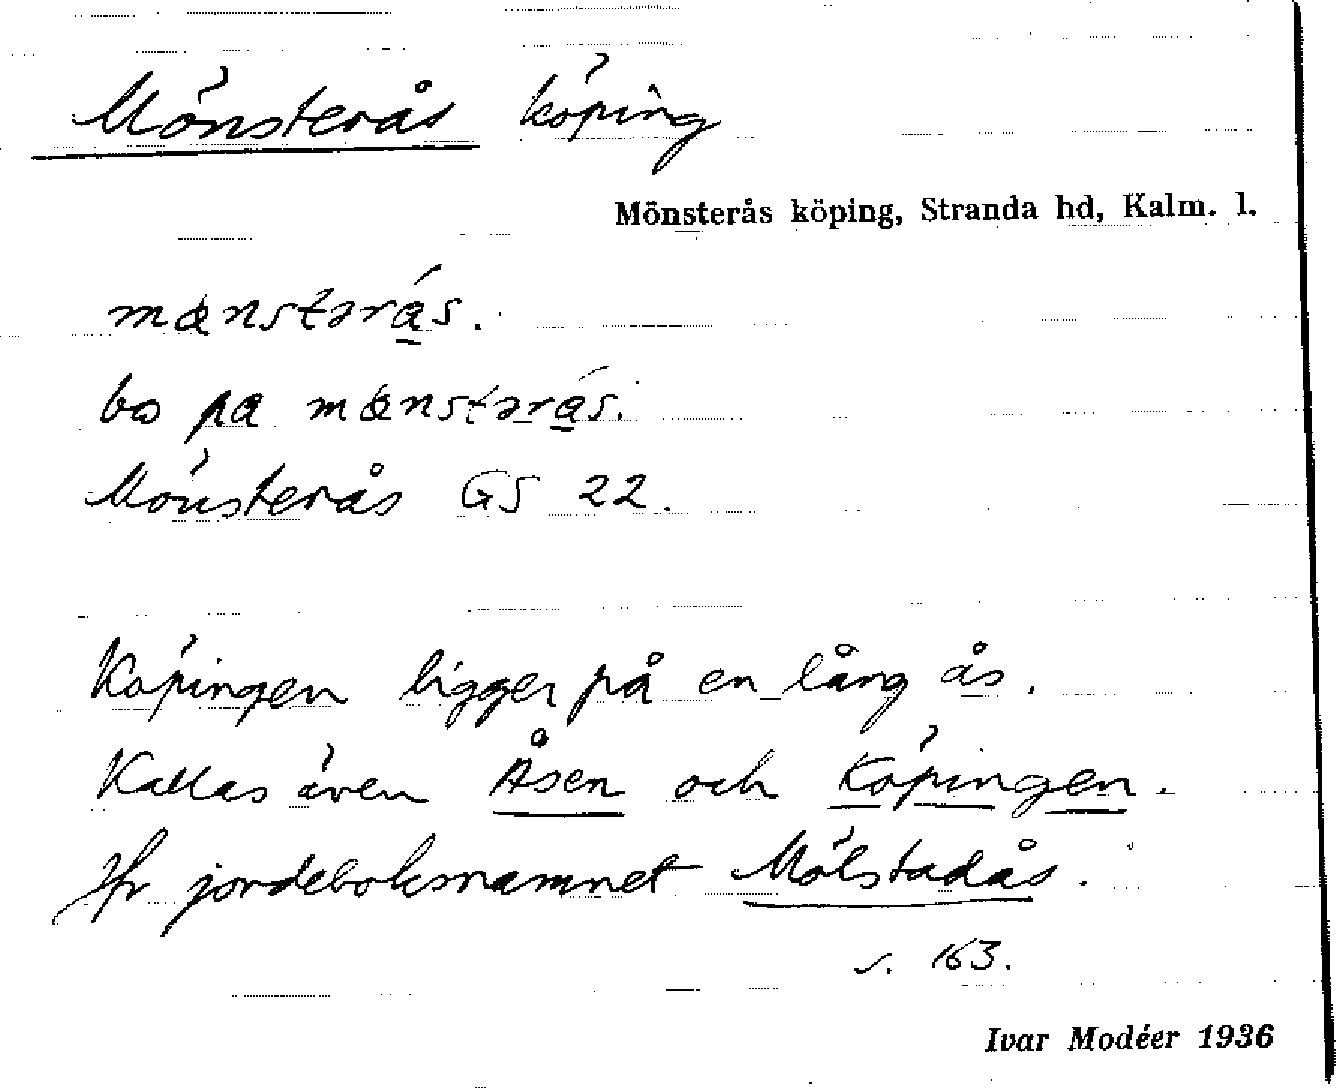 Mönsterås köping
Mönsterås köping, Stranda hd, Kalm. l.
mɶnstərás.
bo pa mɶnstərás.
Mönsterås GS 22.
Köpingen ligger på en lång ås.
Kallas även Åsen och Köpingen.
Jfr jordeboksnamnet Mölstadås.
s. 163.
Ivar Modéer 1936